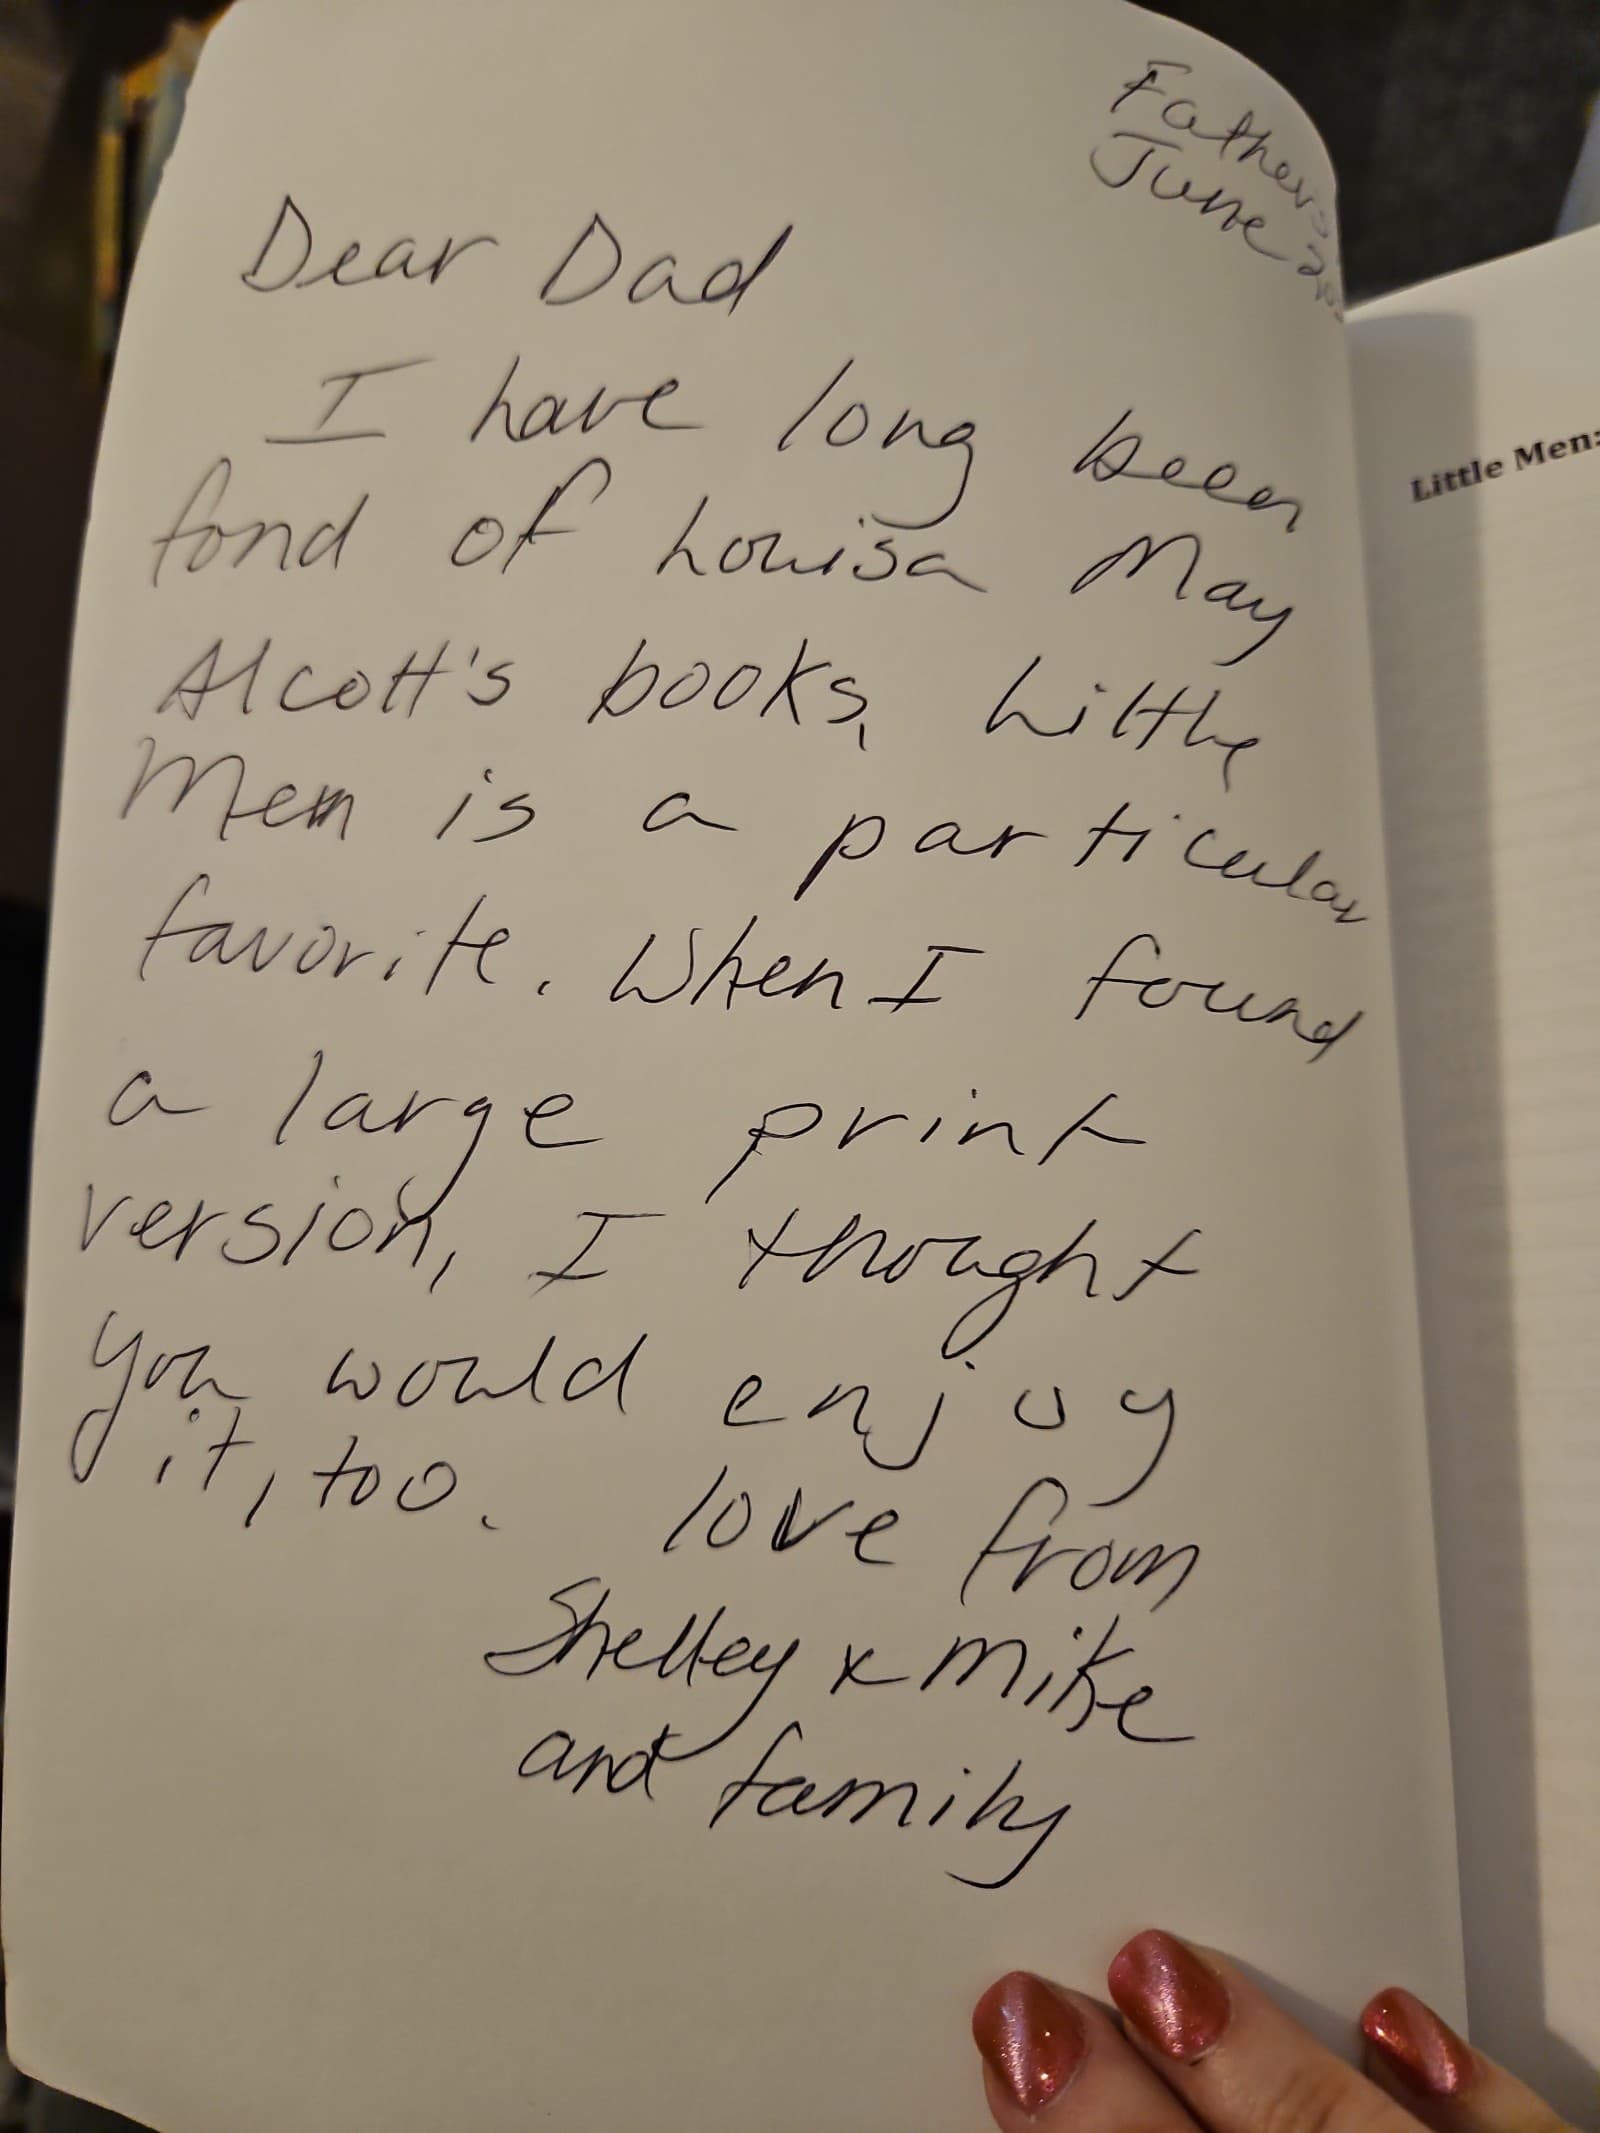 Father's
June 20
Dear Dad
I have long been
fond of Louisa May
Alcott's books, Little
Men is a particular
favorite. When I found
a large print
version, I thought
you would enjoy
it, too. love from
Shelley & Mike
and family
Little Men: